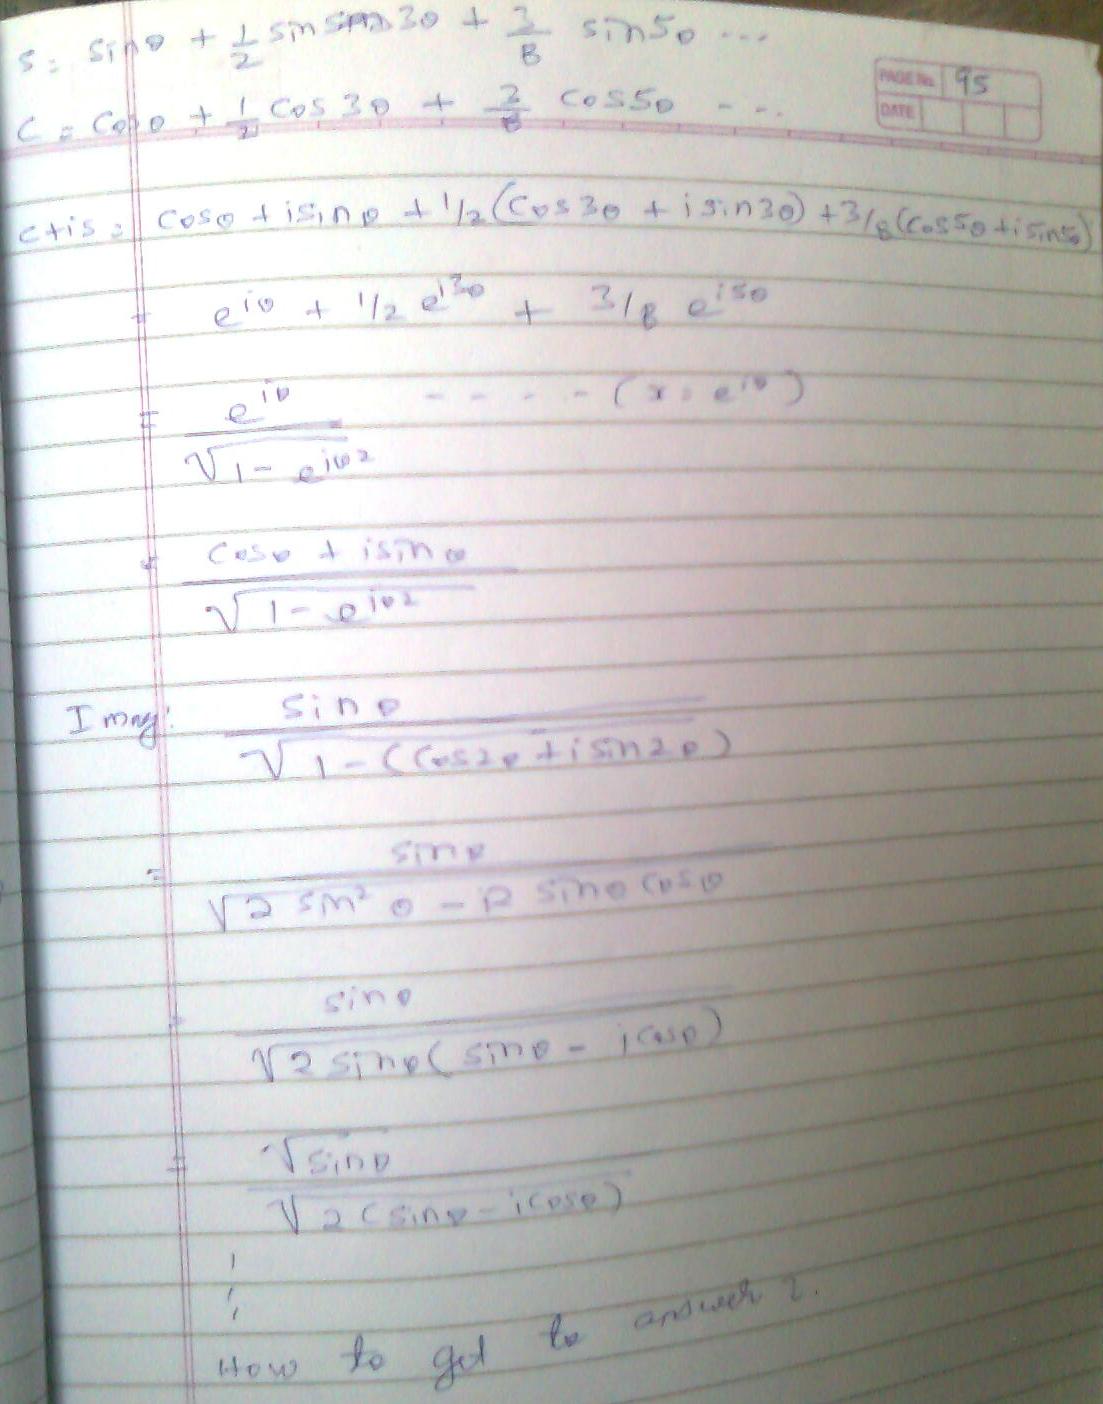 S = sinθ + 1/2 sin 3θ + 3/8 sin5θ ...
PAGE No. 95
DATE
C = cosθ + 1/2 cos3θ + 3/8 cos5θ - - .
C+is = cosθ + isinθ + 1/2 (cos3θ + isin3θ) + 3/8 (cos5θ + isin5θ)
= e^iθ + 1/2 e^i3θ + 3/8 e^i5θ
= e^iθ / √1 - e^iθ2 - - - - (x = e^iθ)
= cosθ + isinθ / √1 - e^iθ2
Imag: sinθ / √1 - (cos2θ + isin2θ)
= sinθ / √2 sin²θ - i2 sinθ cosθ
= sinθ / √2 sinθ (sinθ - icosθ)
= √sinθ / √2 (sinθ - icosθ)
How to get to answer ?.